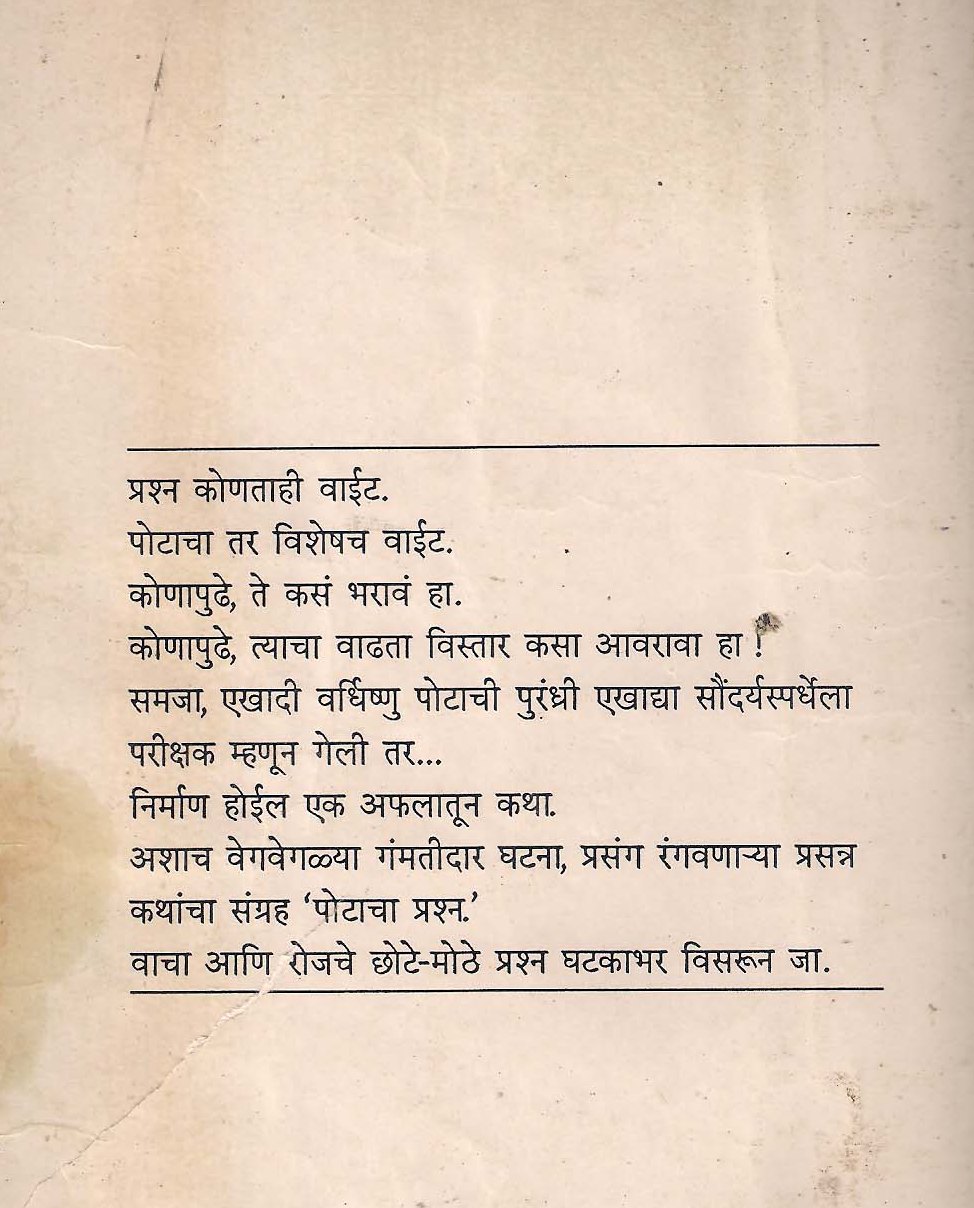 प्रश्न कोणताही वाईट.
पोटाचा तर विशेषच वाईट.
कोणापुढे, ते कसं भरावं हा.
कोणापुढे, त्याचा वाढता विस्तार कसा आवरावा हा !
समजा, एखादी वर्धिष्णु पोटाची पुरंध्री एखाद्या सौंदर्यस्पर्धेला
परीक्षक म्हणून गेली तर...
निर्माण होईल एक अफलातून कथा.
अशाच वेगवेगळ्या गंमतीदार घटना, प्रसंग रंगवणाऱ्या प्रसन्न
कथांचा संग्रह ‘पोटाचा प्रश्न.’
वाचा आणि रोजचे छोटे-मोठे प्रश्न घटकाभर विसरून जा.